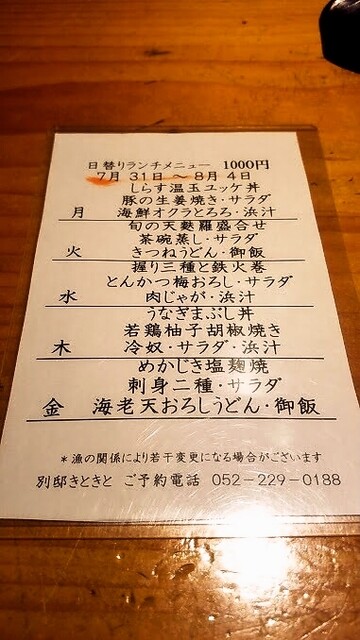 日替りランチメニュー 1000円
7月 31日 ～ 8月 4日
しらす温玉ユッケ丼
豚の生姜焼き・サラダ
月 海鮮オクラとろろ・浜汁
旬の天麩羅盛合せ
茶碗蒸し・サラダ
火 きつねうどん・御飯
握り三種と鉄火巻
とんかつ梅おろし・サラダ
水 肉じゃが・浜汁
うなぎまぶし丼
若鶏柚子胡椒焼き
木 冷奴・サラダ・浜汁
めかじき塩麹焼
刺身二種・サラダ
金 海老天おろしうどん・御飯
＊漁の関係により若干変更になる場合がございます
別邸きときと ご予約電話 052－229－0188